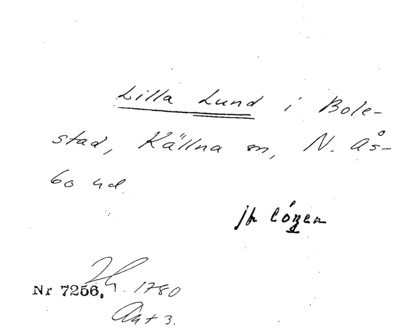 Lilla Lund i Bole-
stad, Källna sn, N. Ås-
bo hd.
jfr
Nr 7256, 1780
Ant 3.